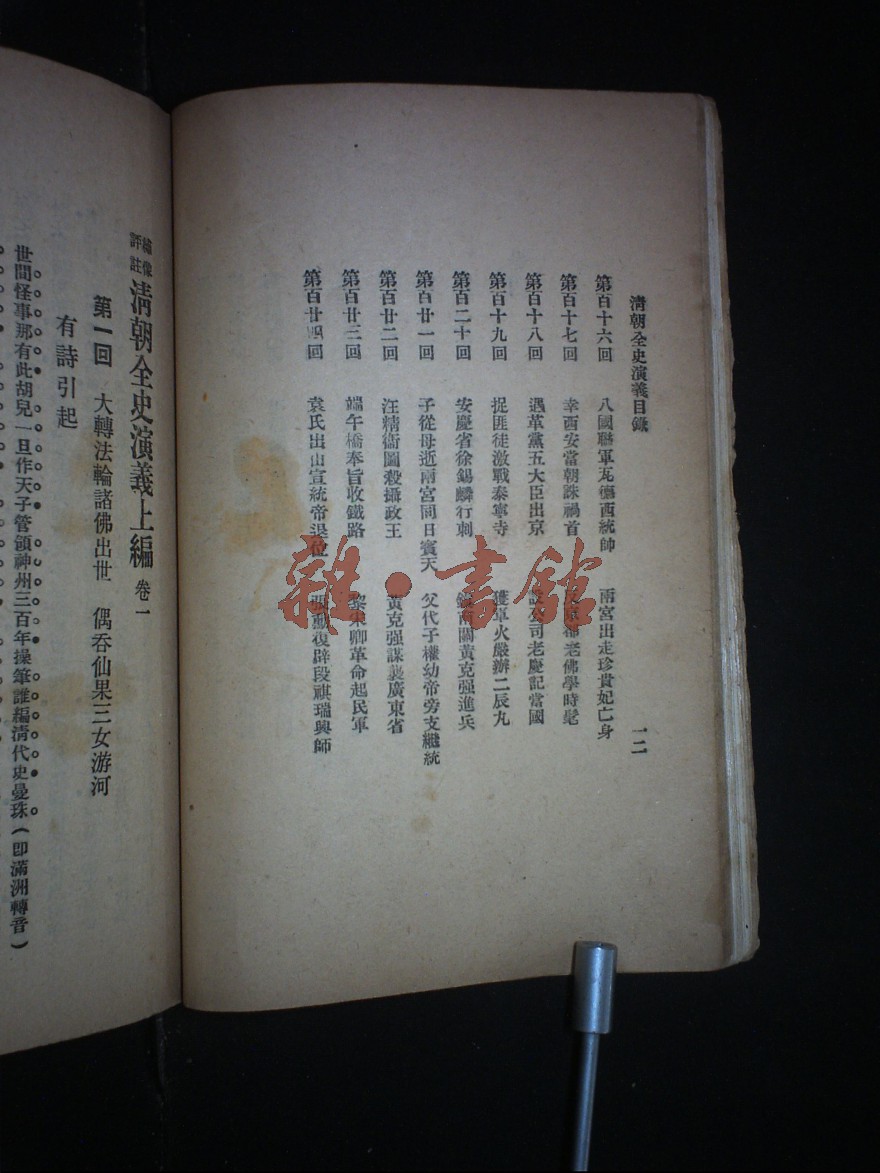 清朝全史演義目錄 一二
第百十六回 八國聯軍瓦德西統帥 兩宮出走珍貴妃亡身
第百十七回 幸西安當朝誅禍首 都老佛學時髦
第百十八回 遇革黨五大臣出京 設公司老慶記當國
第百十九回 捉匪徒激戰泰寧寺 獲軍火嚴辦二辰丸
第百二十回 安慶省徐錫麟行刺 鎮南關黃克强進兵
第百廿一回 子從母逝兩宮同日賓天 父代子權幼帝旁支繼統
第百廿二回 汪精衞圖殺攝政王 黃克强謀襲廣東省
第百廿三回 端午橋奉旨收鐵路 黎宋卿革命起民軍
第百廿四回 袁氏出山宣統帝退位 張勳復辟段祺瑞興師
繡像評註 清朝全史演義上編 卷一
第一回 大轉法輪諸佛出世 偶吞仙果三女游河
有詩引起
世間怪事那有此胡兒一旦作天子管領神州三百年操筆誰編清代史曼珠(即滿洲轉音)
雜·書館